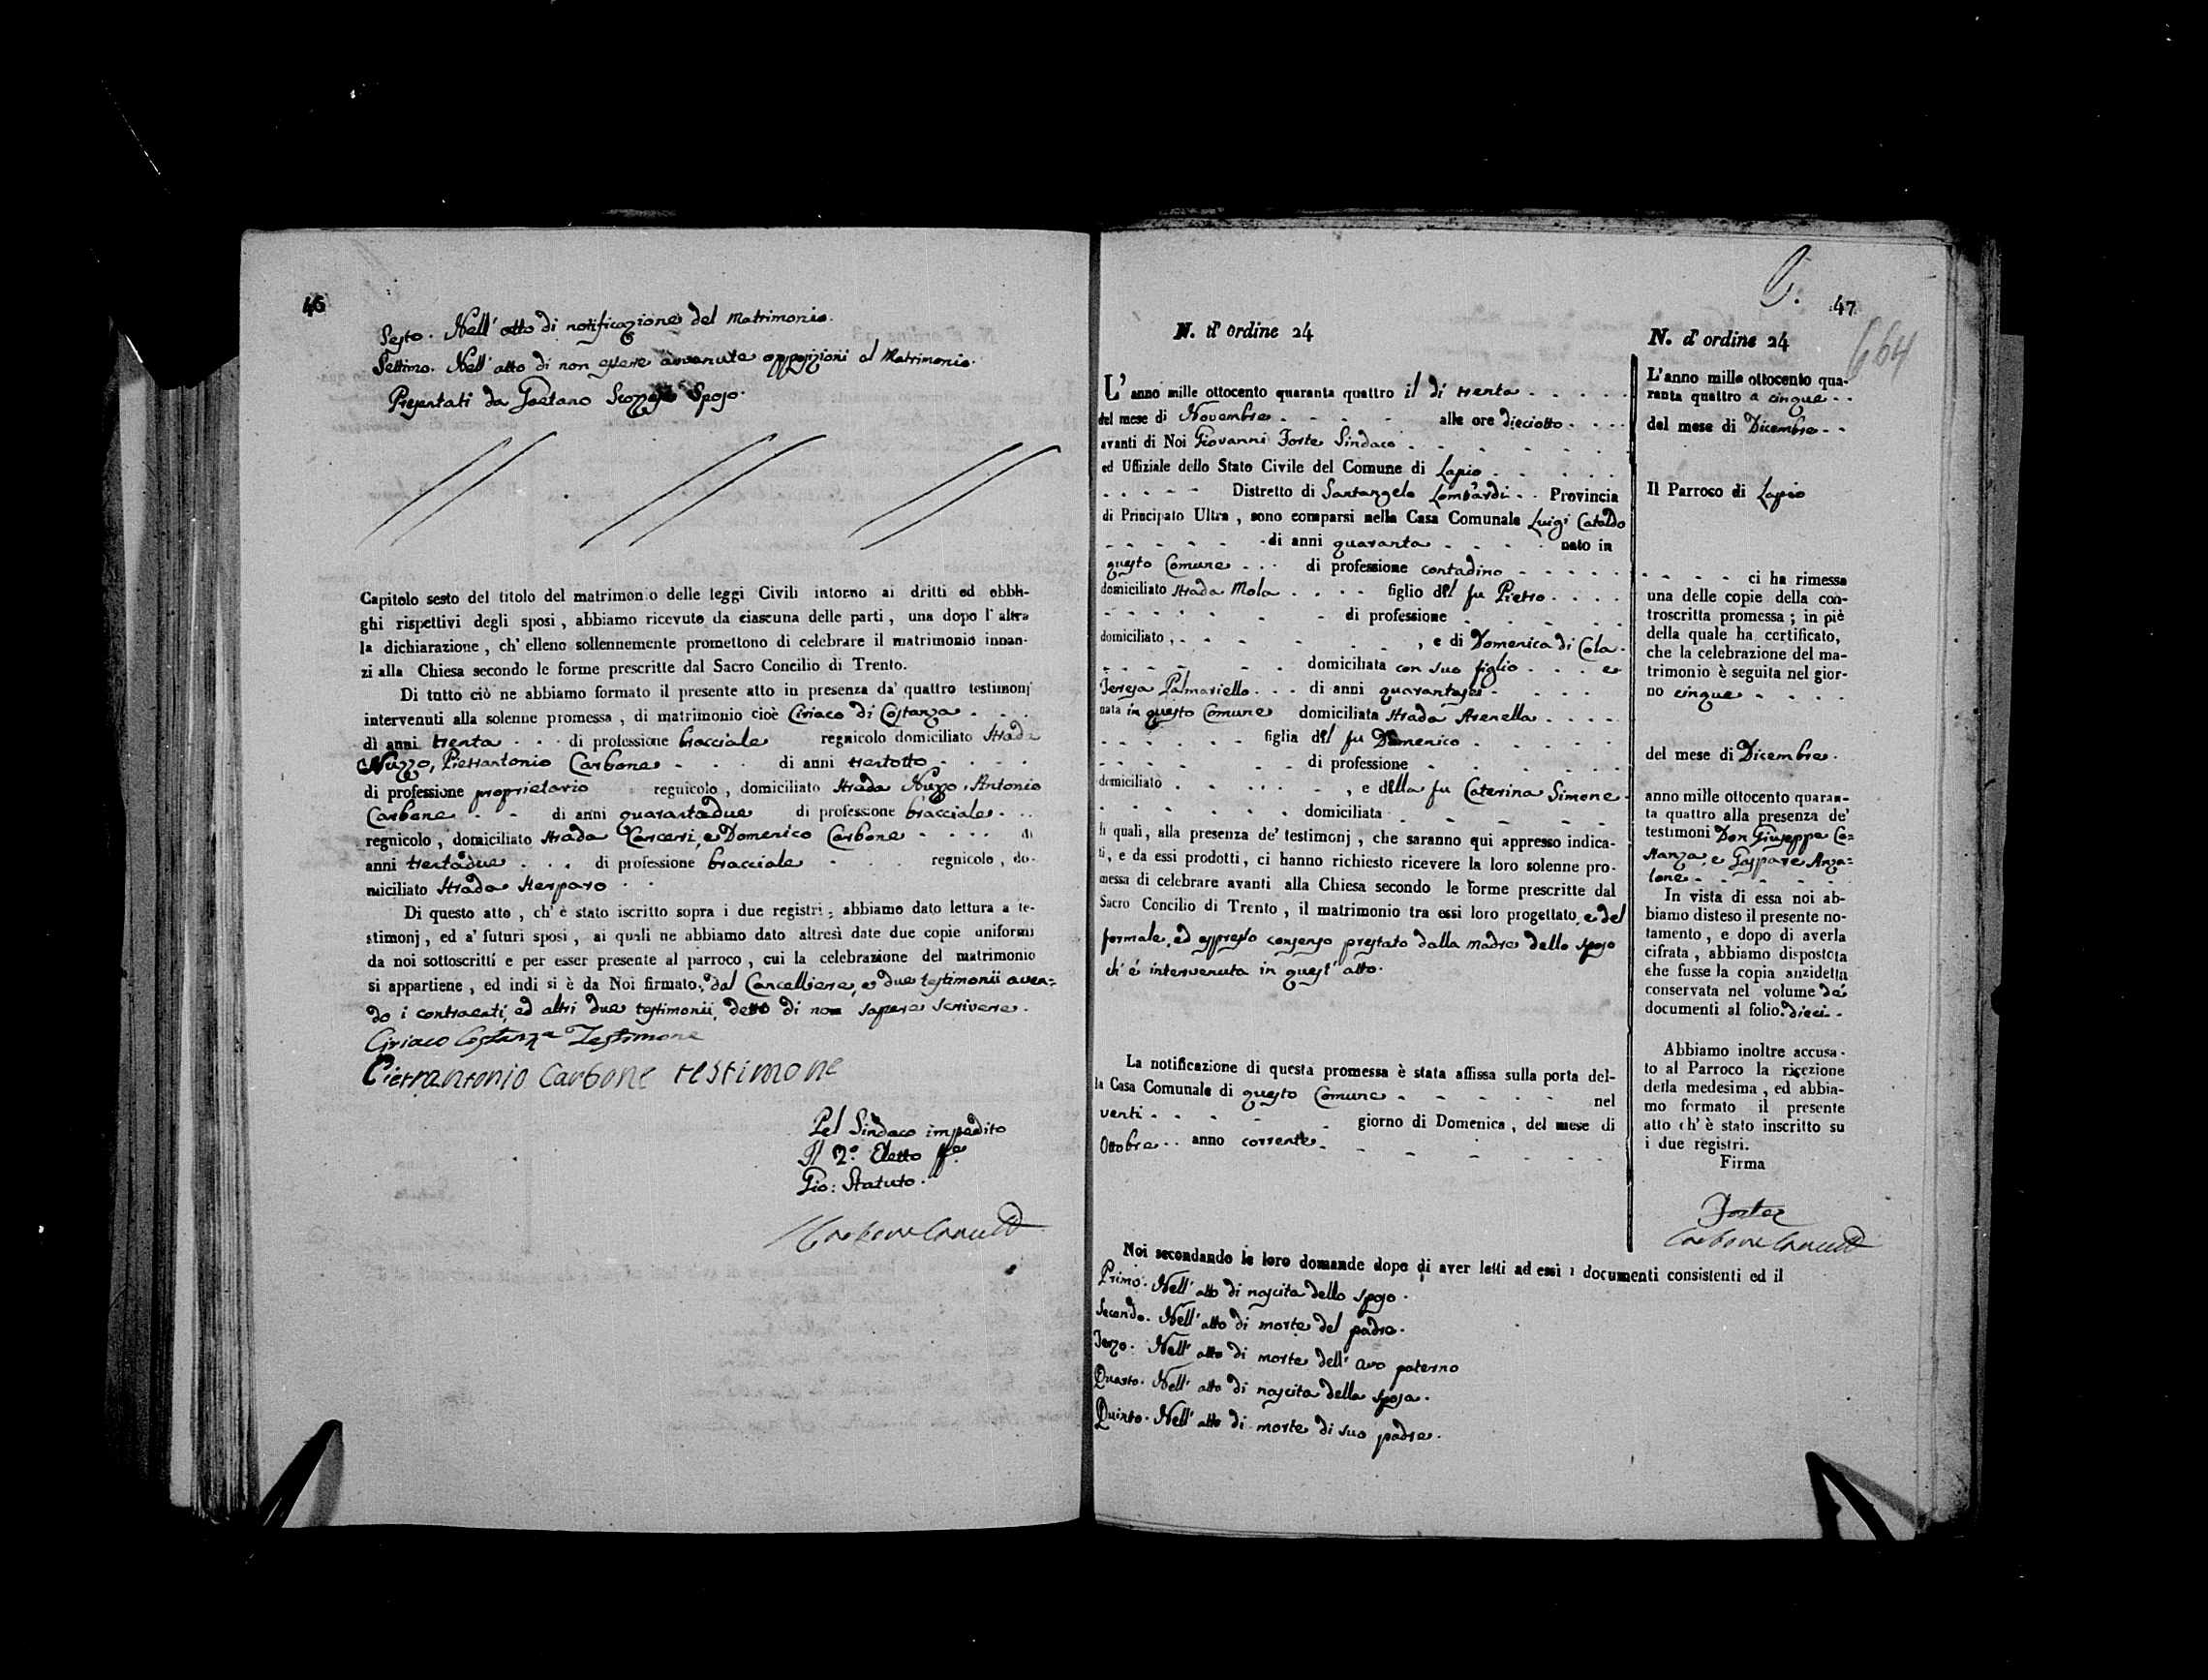 46
Sesto. Nell'atto di notificazione del Matrimonio.
Settimo. Nell'atto di non essere avvenute opposizioni al Matrimonio.
Presentati da Gaetano Sposo.
Capitolo sesto del titolo del matrimonio delle leggi Civili intorno ai dritti ed obbli-
ghi rispettivi degli sposi, abbiamo ricevuto da ciascuna delle parti, una dopo l'altra
la dichiarazione, ch'elleno sollennemente promettono di celebrare il matrimonio innan-
zi alla Chiesa secondo le forme prescritte dal Sacro Concilio di Trento.
Di tutto ciò ne abbiamo formato il presente atto in presenza da' quattro testimonj
intervenuti alla solenne promessa, di matrimonio cioè Ciriaco di Costanza . . .
di anni trenta . . . di professione bracciale regnicolo domiciliato Strada
Nuzzo, Pietrantonio Carbone - - - di anni trentotto - - - -
di professione proprietario regnicolo, domiciliato Strada Nuzzo, Antonio
Carbone - - di anni quarantadue di professione bracciale - . .
regnicolo, domiciliato Strada Carceri, e Domenico Carbone - - - - di
anni trentadue . . . di professione bracciale - - . regnicolo, do-
miciliato Strada Sterparo - -
Di questo atto, ch'è stato iscritto sopra i due registri; abbiamo dato lettura a te-
stimonj, ed a' futuri sposi, ai quali ne abbiamo dato altresì date due copie uniformi
da noi sottoscritti e per esser presente al parroco, cui la celebrazione del matrimonio
si appartiene, ed indi si è da Noi firmato, dal Cancelliere, e due testimonii aven=
do i contraenti, ed altri due testimonii, detto di non sapere scrivere.
Ciriaco Costanza Testimone
Pietrantonio Carbone testimone
Pel Sindaco impedito
Il 2.° Eletto
Gio: Statuto.
Carbone
47
664
N. d'ordine 24
L'anno mille ottocento quaranta quattro il dì trenta . . . . .
del mese di Novembre . - - - - alle ore dieciotto . . . .
avanti di Noi Giovanni Forte Sindaco . . - - - -
ed Uffiziale dello Stato Civile del Comune di Lapio . - - - -
. . . - - Distretto di Santangelo Lombardi . . Provincia
di Principato Ultra, sono comparsi nella Casa Comunale Luigi Cataldo
- - - - - - di anni quaranta . - - - nato in
questo Comune . . . di professione contadino - - - - -
domiciliato Strada Mola . . . . figlio del fu Pietro . . . .
- - - - - - di professione . - - - -
domiciliato, . - - - - - , e di Domenica di Cola -
- - - - - - domiciliata con suo figlio . . . e
Teresa Palmariello . . . di anni quarantasei . - - -
nata in questo Comune domiciliata Strada Arenella . . . .
- - - - - - figlia del fu Domenico . - - - -
- - - - - - di professione - - - - -
domiciliato . . - - - - , e della fu Caterina Simone -
- - - - - - domiciliata - - - - -
li quali, alla presenza de' testimonj, che saranno qui appresso indica-
ti, e da essi prodotti, ci hanno richiesto ricevere la loro solenne pro-
messa di celebrare avanti alla Chiesa secondo le forme prescritte dal
Sacro Concilio di Trento, il matrimonio tra essi loro progettato, e del
formale, ed espresso consenso prestato dalla madre dello sposo
ch'è intervenuta in quest'atto.
La notificazione di questa promessa è stata affissa sulla porta del-
la Casa Comunale di questo Comune - - - - - nel
venti - - - - - giorno di Domenica, del mese di
Ottobre . . anno corrente - - - - - -
Noi secondando le loro domande dopo di aver letti ad essi i documenti consistenti ed il
Primo. Nell'atto di nascita dello sposo.
Secondo. Nell'atto di morte del padre.
Terzo. Nell'atto di morte dell'avo paterno
Quarto. Nell'atto di nascita della sposa.
Quinto. Nell'atto di morte di suo padre.
N. d'ordine 24
L'anno mille ottocento qua-
ranta quattro a cinque - -
del mese di Dicembre - -
Il Parroco di Lapio
- - - - ci ha rimessa
una delle copie della con-
troscritta promessa; in piè
della quale ha certificato,
che la celebrazione del ma-
trimonio è seguita nel gior-
no cinque - - - -
del mese di Dicembre.
anno mille ottocento quaran-
ta quattro alla presenza de'
testimoni Don Giuseppe Co=
stanza, e Gaspare Anza=
lone - - - - -
In vista di essa noi ab-
biamo disteso il presente no-
tamento, e dopo di averla
cifrata, abbiamo disposto ta
che fusse la copia anzidetta
conservata nel volume de'
documenti al folio dieci . -
Abbiamo inoltre accusa-
to al Parroco la ricezione
della medesima, ed abbia-
mo formato il presente
atto ch'è stato inscritto su
i due registri.
Firma
Forte
Carbone